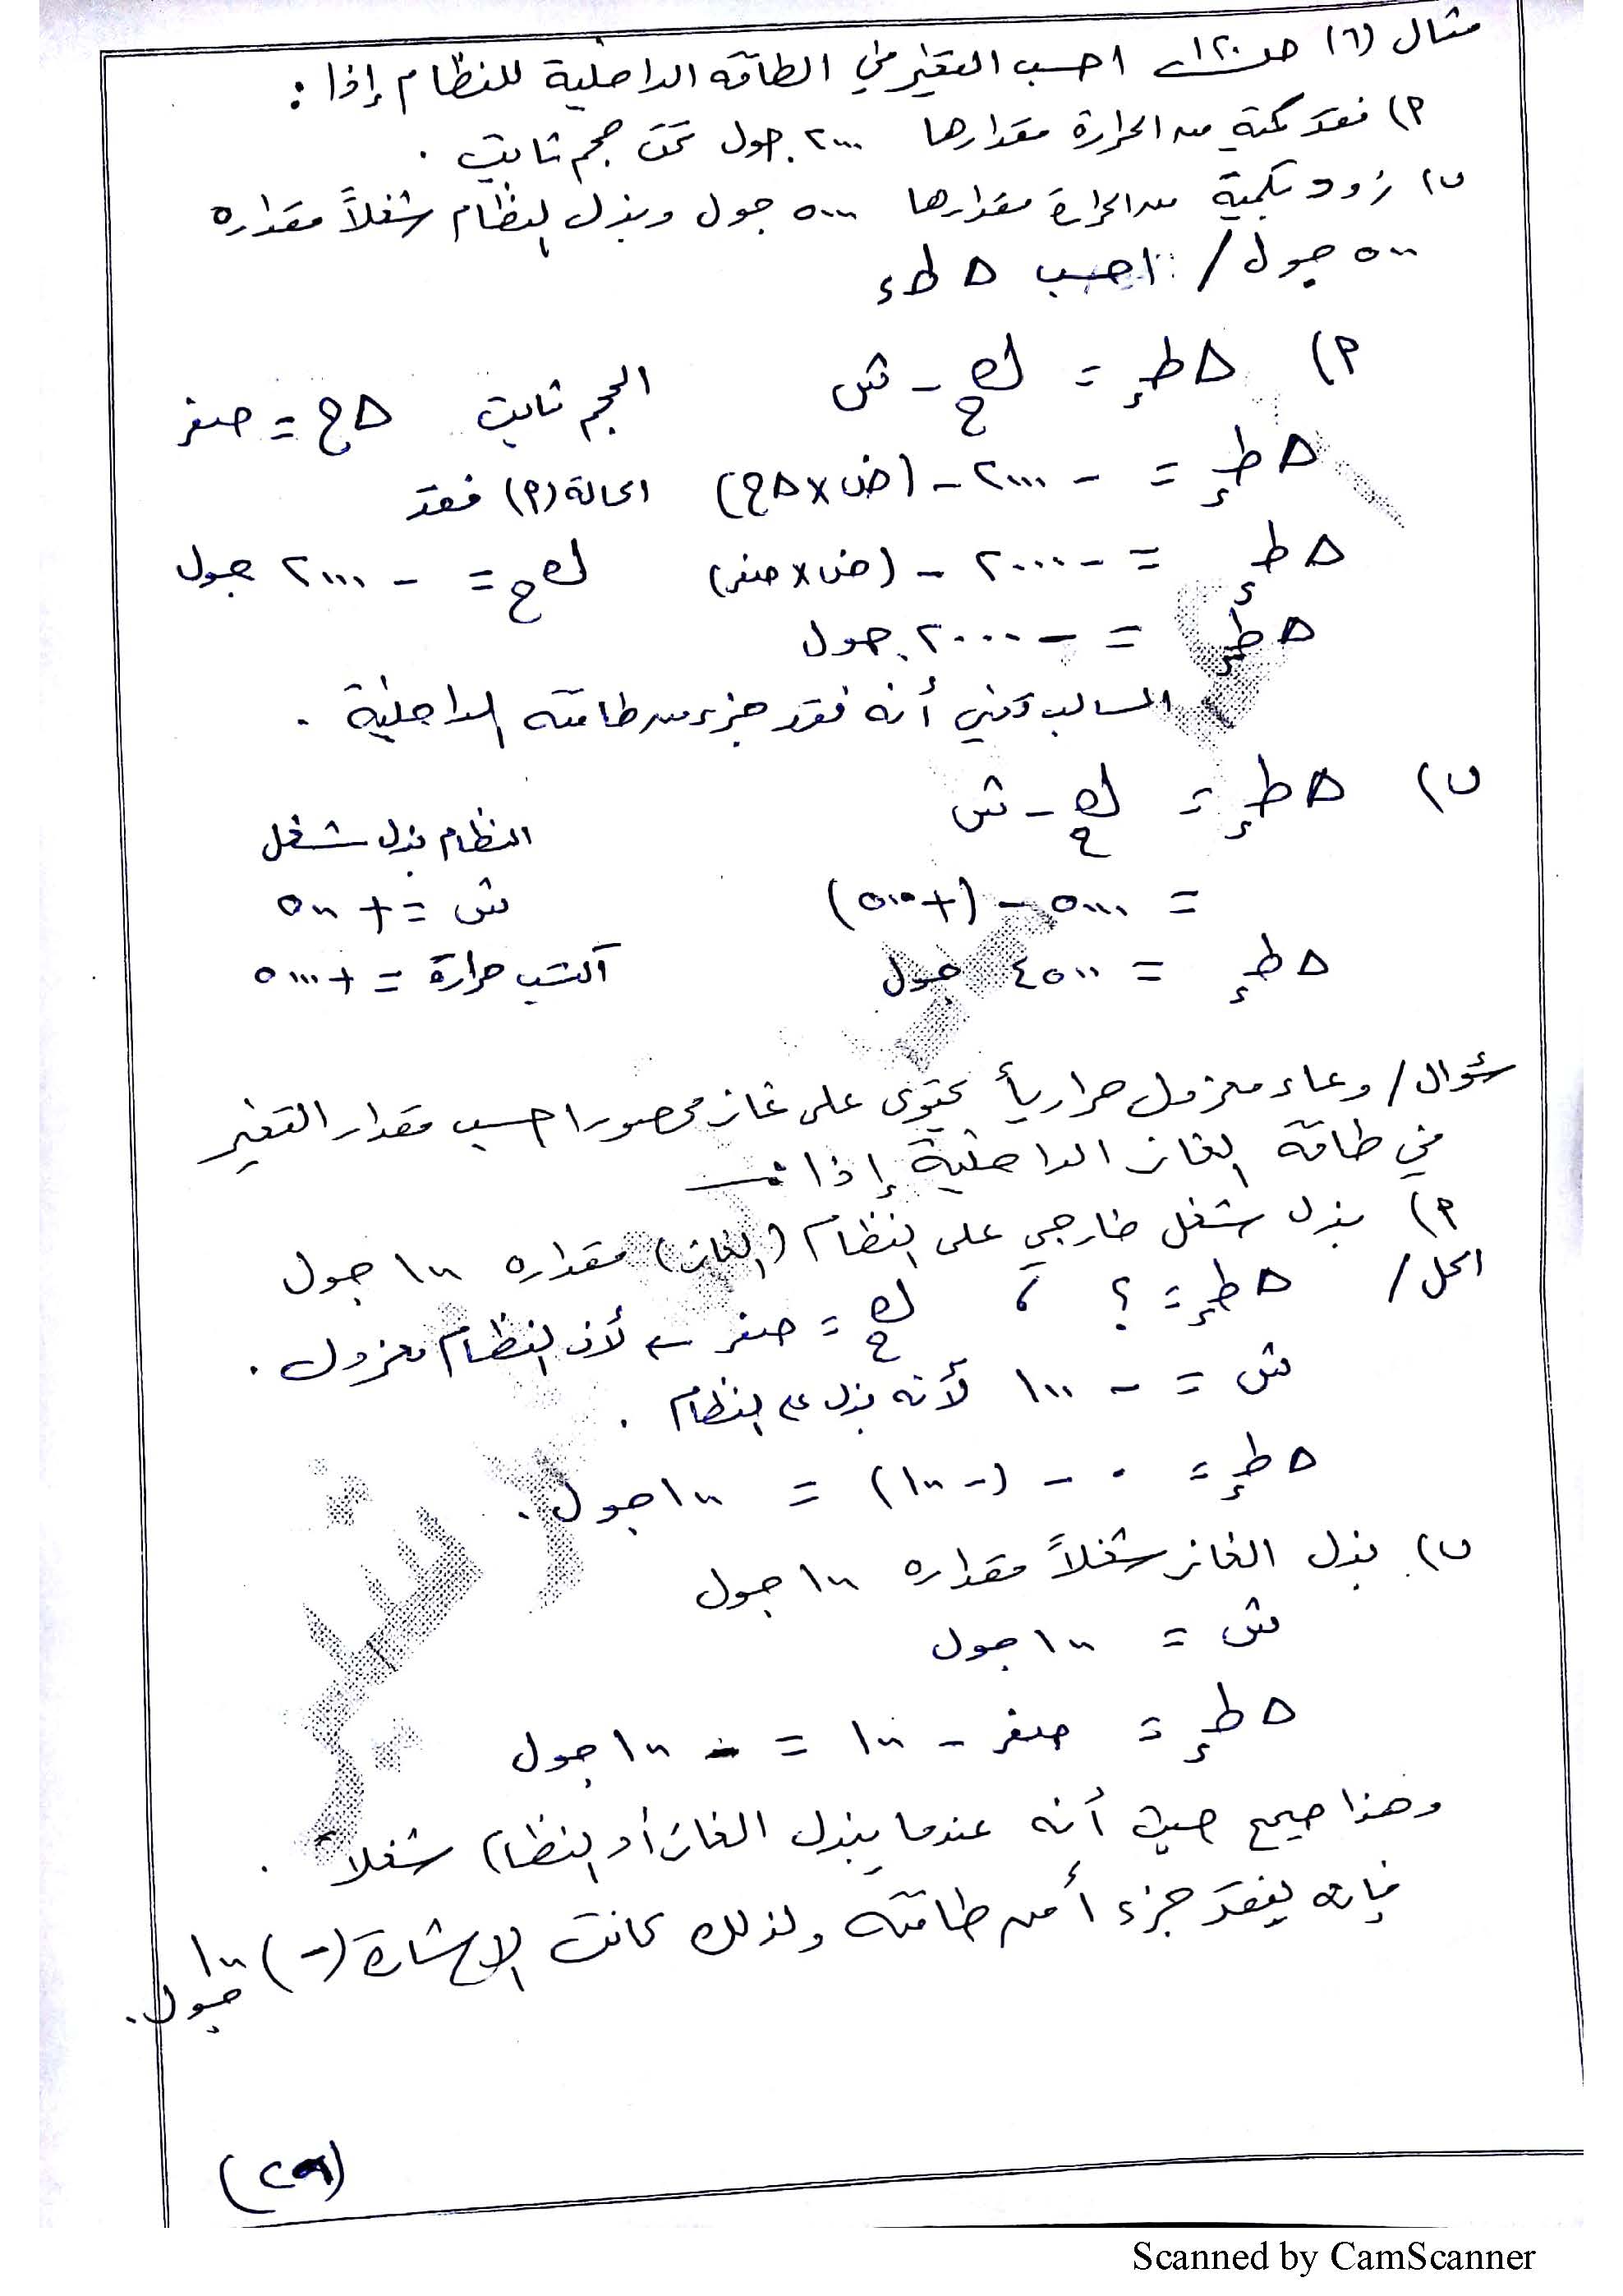 مثال (٦) ص ١٢٠ احسب التغير في الطاقة الداخلية للنظام إذا :
٢) فقد كمية من الحرارة مقدارها ٢٠٠٠ جول تحت حجم ثابت .
ب) زود بكمية من الحرارة مقدارها ٥٠٠٠ جول وبذل النظام شغلاً مقداره
٥٠٠ جول / احسب Δ طء
٢) Δ طإ = كح - ش الحجم ثابت Δح = صفر
Δ طإ = - ٢٠٠٠ - (ض × Δح) الحالة (٢) فقد
Δ طإ = - ٢٠٠٠ - (ض × صفر) كح = - ٢٠٠٠ جول
Δ طإ = - ٢٠٠٠ جول
السالب تعني أنه فقد جزء من طاقته الداخلية .
ب) Δ طإ = كح - ش
النظام بذل شغل
= ٥٠٠٠ - (+ ٥٠٠) ش = + ٥٠٠
Δ طإ = ٤٥٠٠ جول اكتسب حرارة = + ٥٠٠٠
سؤال / وعاء معزول حرارياً يحتوى على غاز محصور احسب مقدار التغير
في طاقة الغاز الداخلية إذا :
٢) بذل شغل خارجي على النظام (الغاز) مقداره ١٠٠ جول
الحل / Δ طإ = ؟ ، كح = صفر ← لأن النظام معزول .
ش = - ١٠٠ لأنه بذل على النظام .
Δ طإ = ٠ - (- ١٠٠) = ١٠٠ جول .
ب) بذل الغاز شغلاً مقداره ١٠٠ جول
ش = ١٠٠ جول
Δ طإ = صفر - ١٠٠ = - ١٠٠ جول
وهذا صحيح حيث أنه عندما يبذل الغاز أو النظام شغلاً .
فإنه يفقد جزء أ من طاقته ولذلك كانت الإشارة (-) ١٠٠ جول .
(٢٩)
Scanned by CamScanner